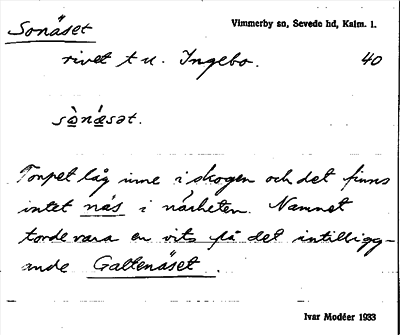 Sonäset
Vimmerby so, Sevede hd, Kalm. l.
rivet t u. Ingebo. 40
sò̱nǽ̱sət.
Torpet låg inne i skogen och det finns
intet näs i närheten. Namnet
torde vara en vits på det intillligg-
ande Galtenäset.
Ivar Modéer 1933